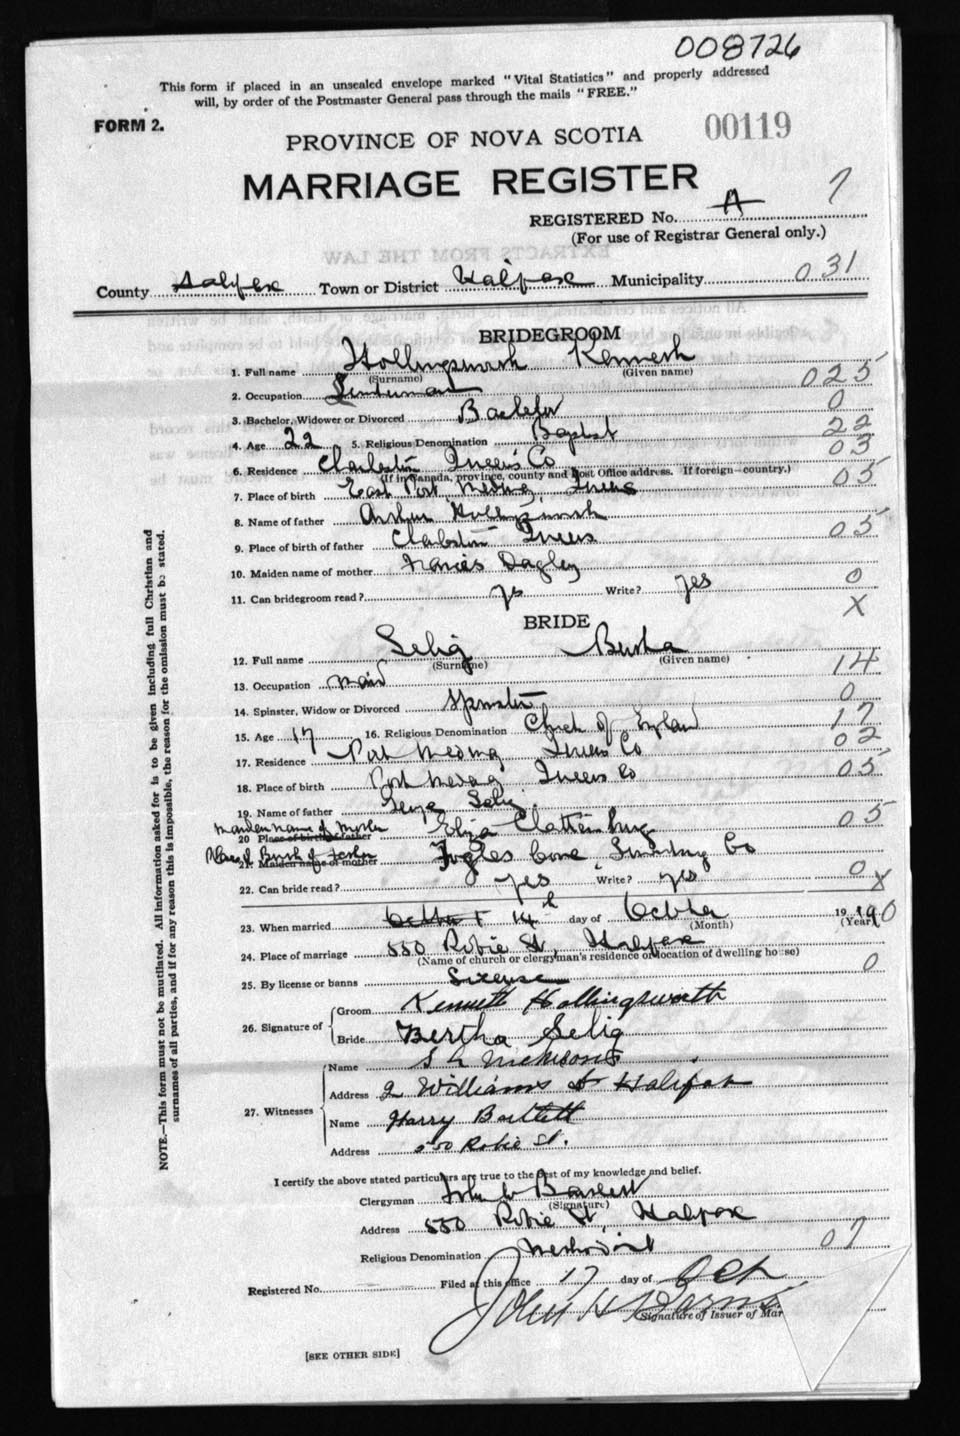 008726
This form if placed in an unsealed envelope marked "Vital Statistics" and properly addressed
will, by order of the Postmaster General pass through the mails "FREE."
FORM 2.
PROVINCE OF NOVA SCOTIA 00119
MARRIAGE REGISTER
REGISTERED No. A 7
(For use of Registrar General only.)
County Halifax Town or District Halifax Municipality 031
BRIDEGROOM
1. Full name Hollingsworth Kenneth
(Surname) (Given name)
2. Occupation 025
3. Bachelor, Widower or Divorced Bachelor 0
4. Age 22 5. Religious Denomination Baptist 22
6. Residence Charleston Queens Co 03
(If in Canada, province, county and Post Office address. If foreign—country.)
7. Place of birth East Port Medway, Queens 05
8. Name of father Arthur Hollingsworth
9. Place of birth of father Charleston Queens 05
10. Maiden name of mother Frances Dagley
11. Can bridegroom read? yes Write? yes 0
X
BRIDE
12. Full name Selig Bertha
(Surname) (Given name)
13. Occupation Maid 14
14. Spinster, Widow or Divorced Spinster 0
15. Age 17 16. Religious Denomination Church of England 17
17. Residence Port Medway Queens Co 02
18. Place of birth Port Medway Queens Co 05
19. Name of father George Selig
Maiden name of Mother
20 Place of birth of father Eliza Clattenburg 05
Place of Birth of Father
21. Maiden name of mother Fogles Cove, Lunenburg Co
22. Can bride read? yes Write? yes 0 X
23. When married 14th day of October 1920
(Month) (Year)
24. Place of marriage 550 Robie St, Halifax
(Name of church or clergyman's residence or location of dwelling house)
25. By license or banns License 0
26. Signature of
Groom Kenneth Hollingsworth
Bride Bertha Selig
27. Witnesses
Name
Address 2 Williams St Halifax
Name Harry Bartlett
Address 550 Robie St.
I certify the above stated particulars are true to the best of my knowledge and belief.
Clergyman John W Bartlett
(Signature)
Address 550 Robie St, Halifax
Religious Denomination Methodist 07
Registered No. Filed at this office 17 day of Oct
John H
Signature of Issuer of Mar
[SEE OTHER SIDE]
NOTE.—This form must not be mutilated. All information asked for is to be given including full Christian and
surnames of all parties, and if for any reason this is impossible, the reason for the omission must be stated.